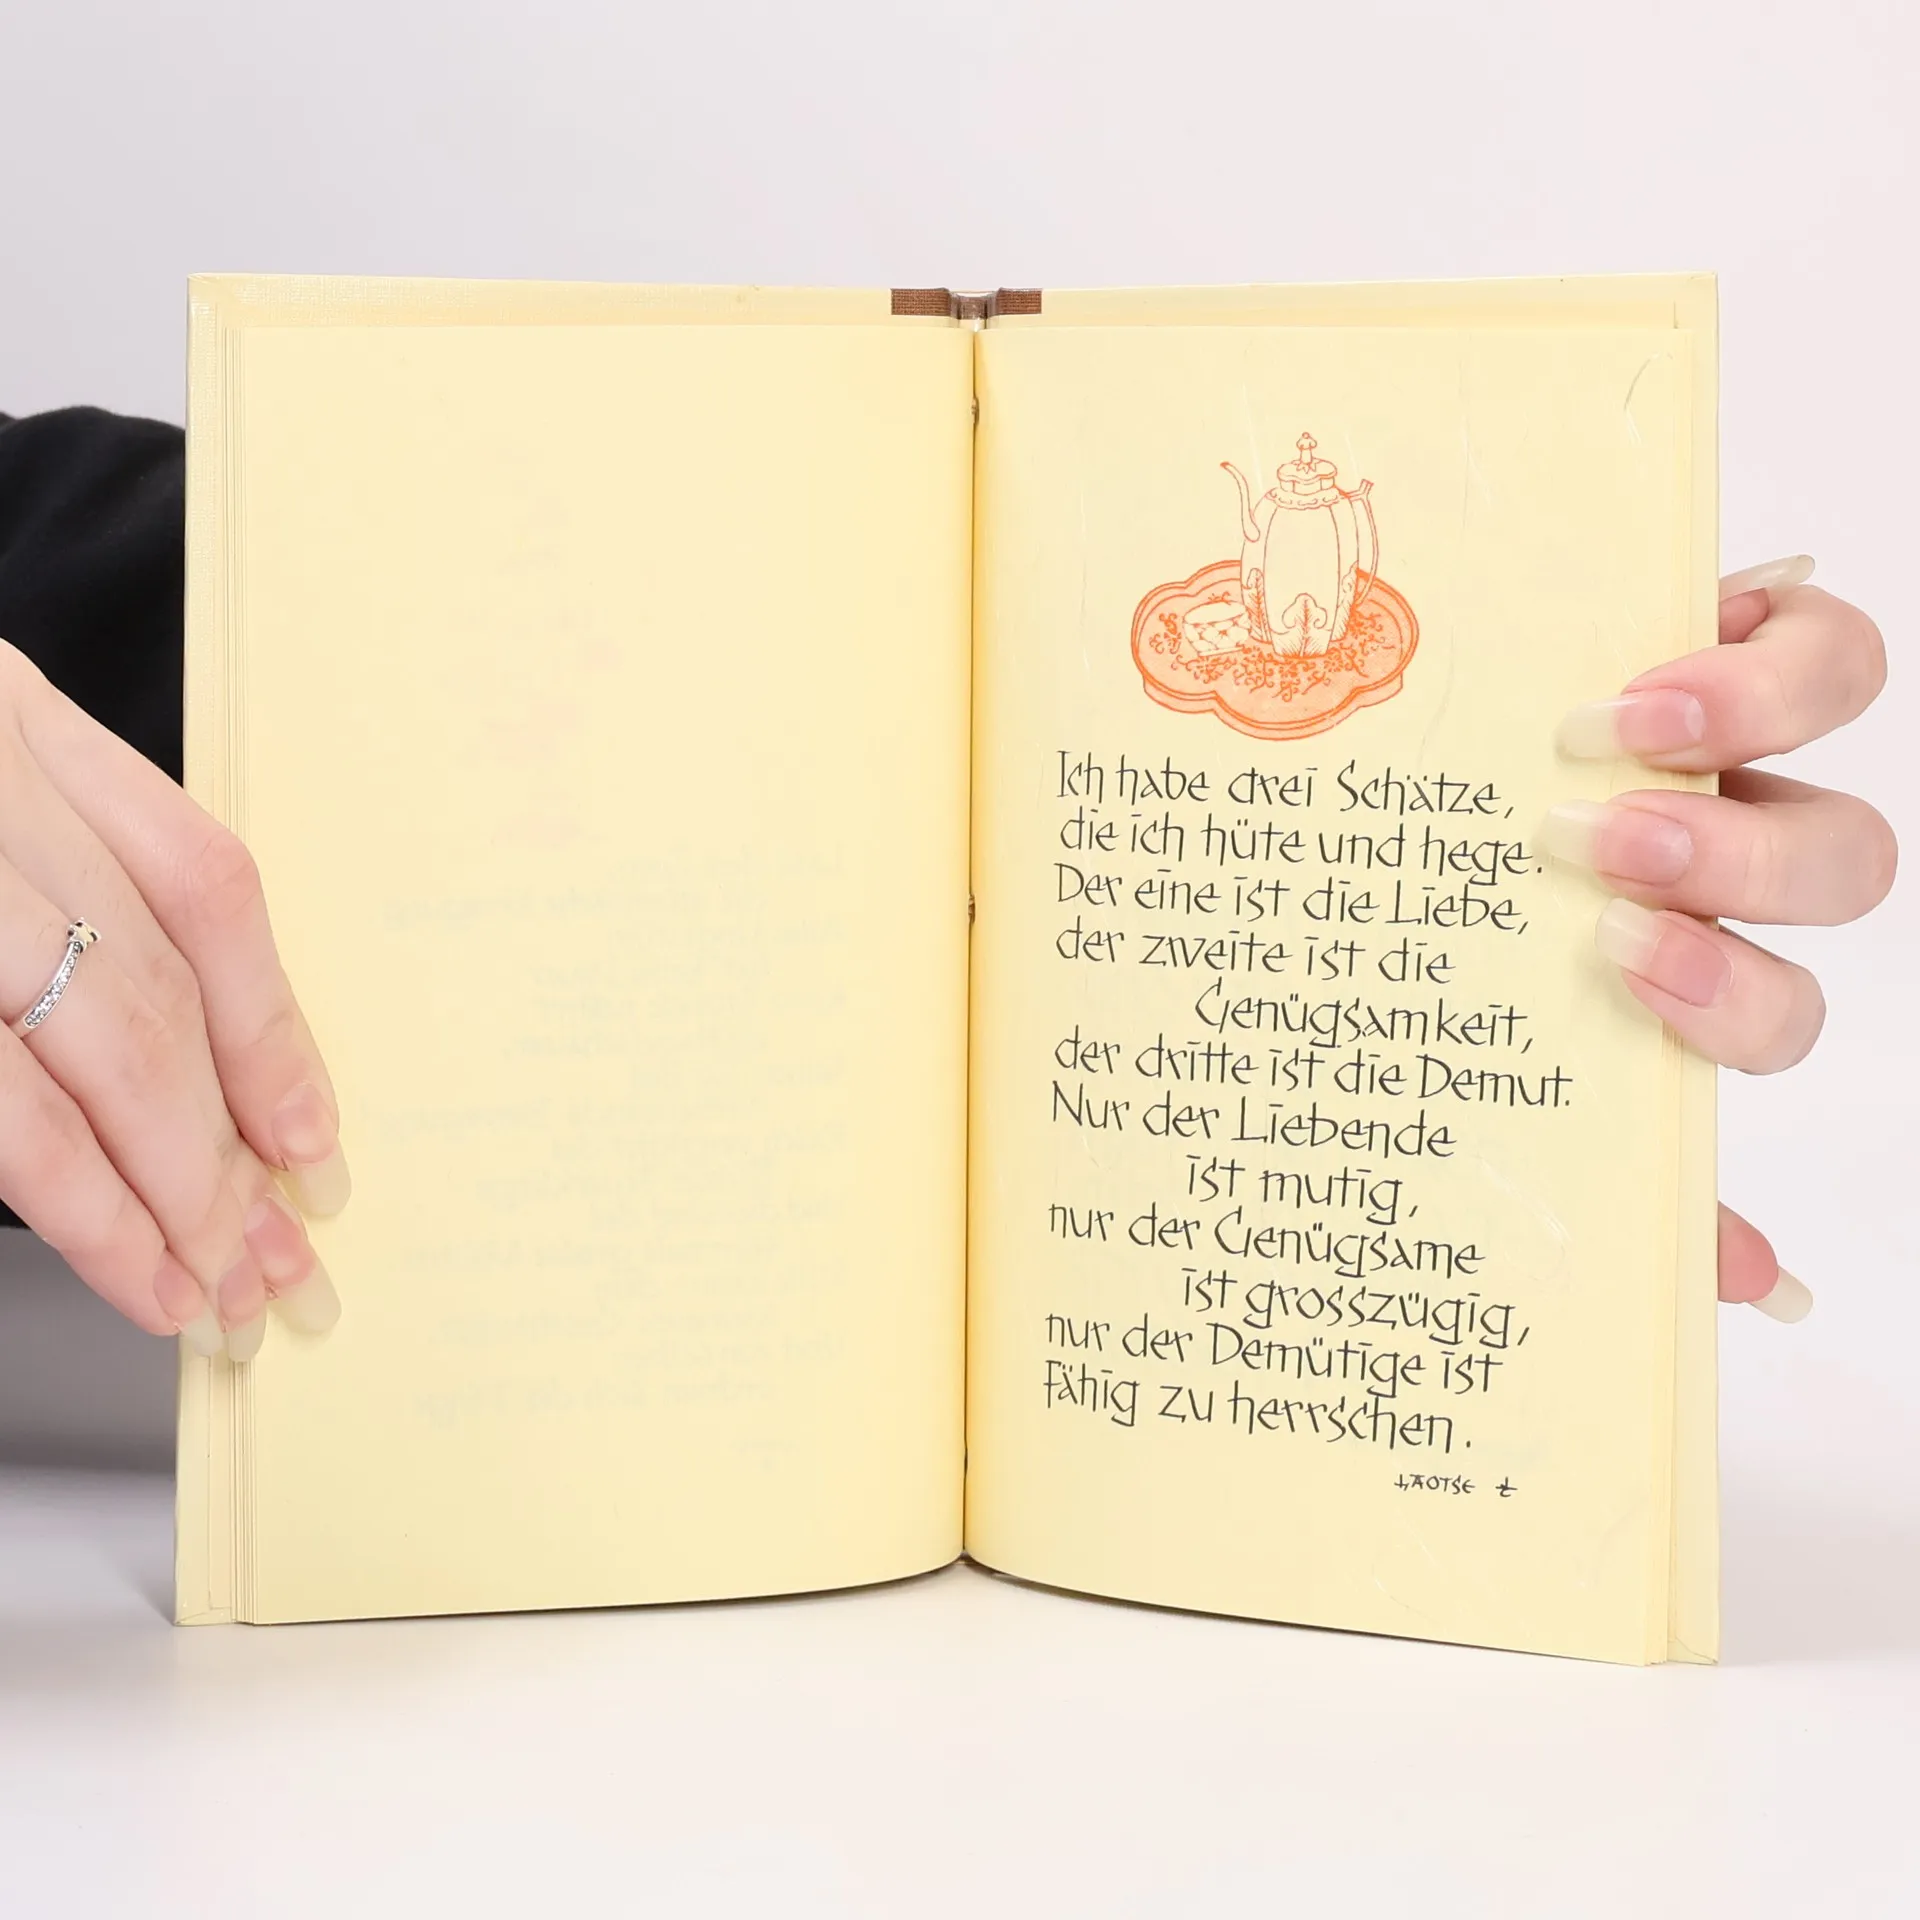 Ich habe drei Schätze,
die ich hüte und hege.
Der eine ist die Liebe,
der zweite ist die
Genügsamkeit,
der dritte ist die Demut.
Nur der Liebende
ist mutig,
nur der Genügsame
ist grosszügig,
nur der Demütige ist
fähig zu herrschen.
LAOTSE